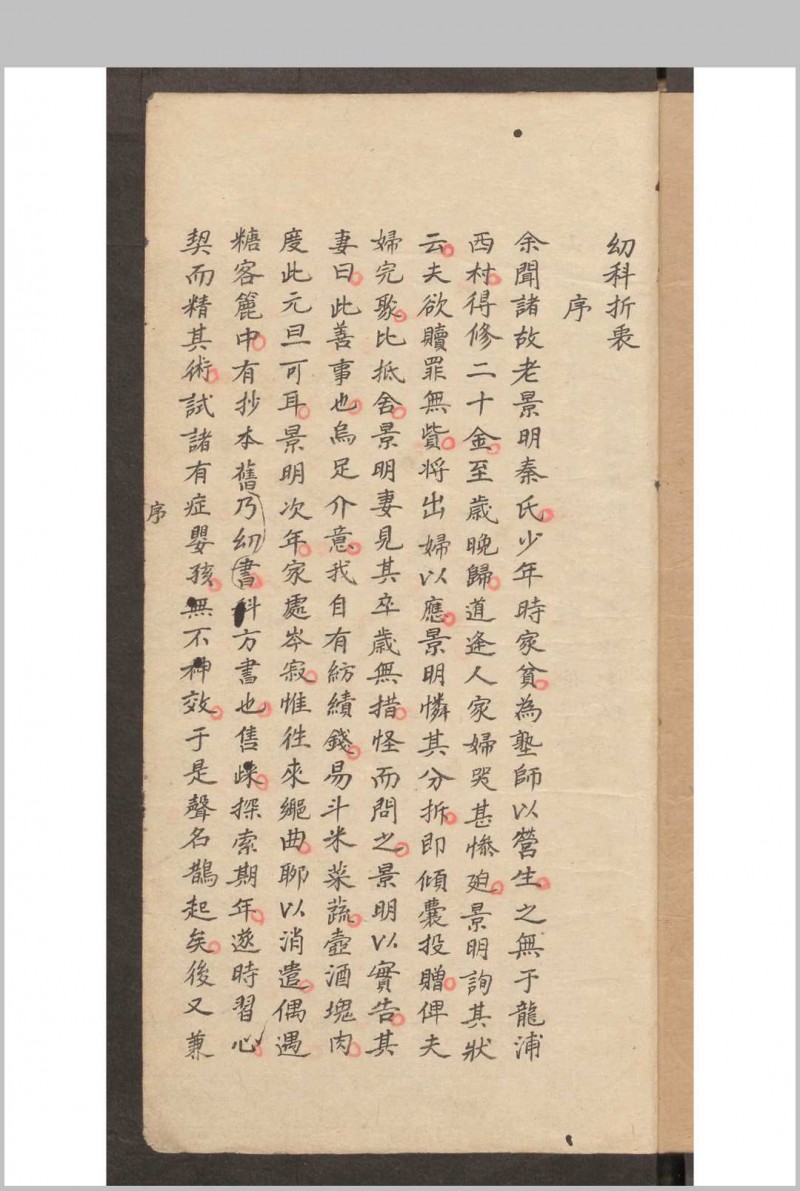 幼科折衷
序
余聞諸故老景明秦氏少年時家貧為塾師以營生之無于龍浦
西村得修二十金至歲晚歸道逢人家婦哭甚慘廹景明詢其狀
云夫欲贖罪無貲将出婦以應景明憐其分拆即傾囊投贈俾夫
婦完聚比抵舍景明妻見其卒歲無措怪而問之景明以實告其
妻曰此善事也烏足介意我自有紡績錢易斗米菜蔬壺酒塊肉
度此元旦可耳景明次年家處岑寂惟徃來繩曲聊以消遣偶遇
糖客簏中有抄本舊乃幼書科方書也售踩探索期年遂時習心
契而精其術試諸有症嬰孩無不神效于是聲名鵲起矣後又兼
序